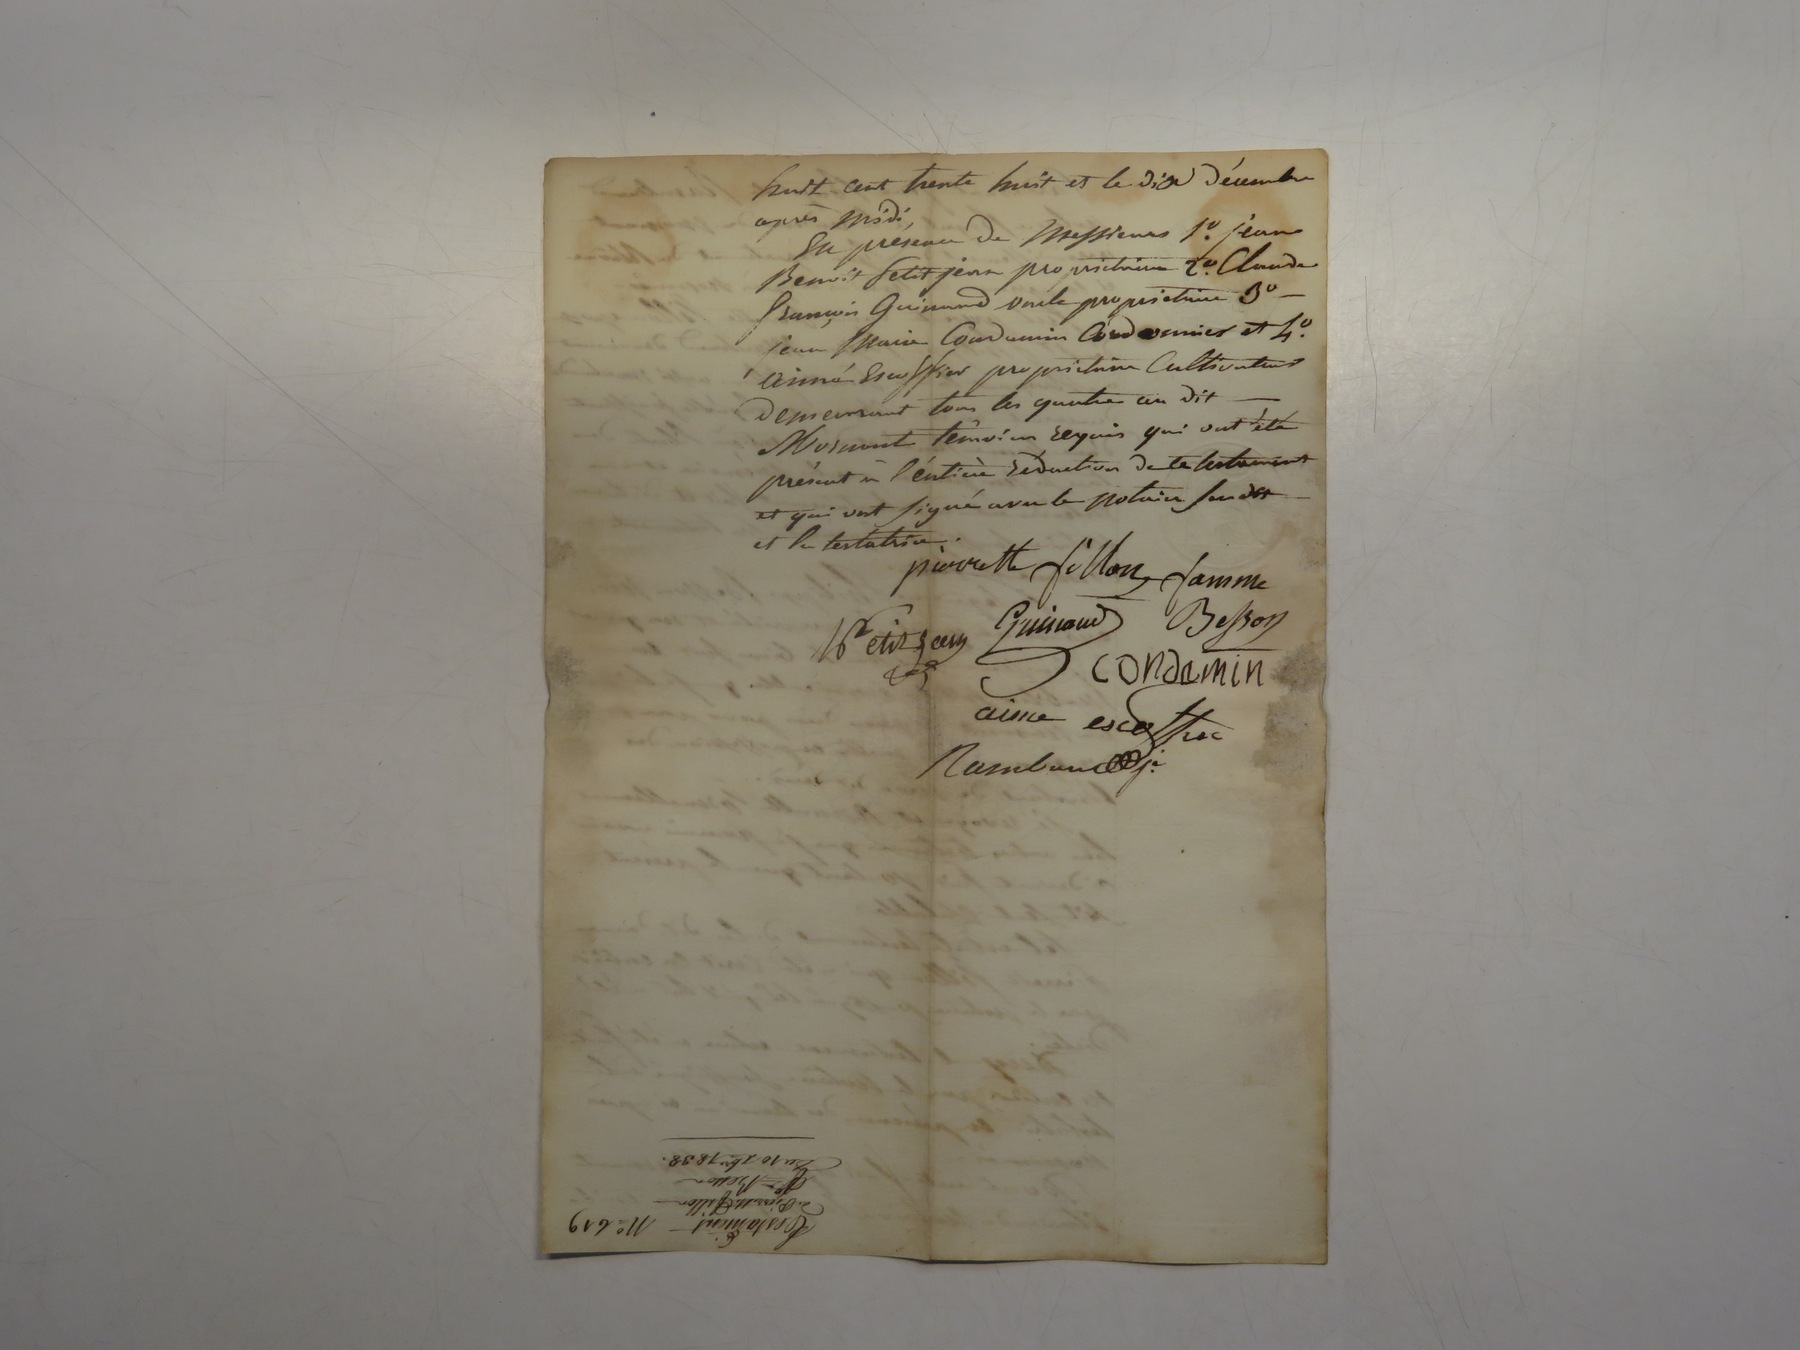 huit cent trente huit et le dix décembre
après midi,
En présence de Messieurs 1º. jean
Benoit Petitjean propriétaire 2º. Claude
François Guinand propriétaire 3º —
jean Marie Condamin Cordonnier et 4º.
aimé Escoffier propriétaire Cultivateur
demeurant tous les quatre au dit —
Mornant témoins requis qui ont été
présent à l'entière rédaction de ce testament
et qui ont signé avec le notaire —
et la testatrice.
pierrette fillon famme
Petitjean Guinand Besson
CONDAMIN
aime escoffier
Rambaud je
Testament Nº 619
de Pierrette Fillon
fe Besson
Du 10 xbre 1838.